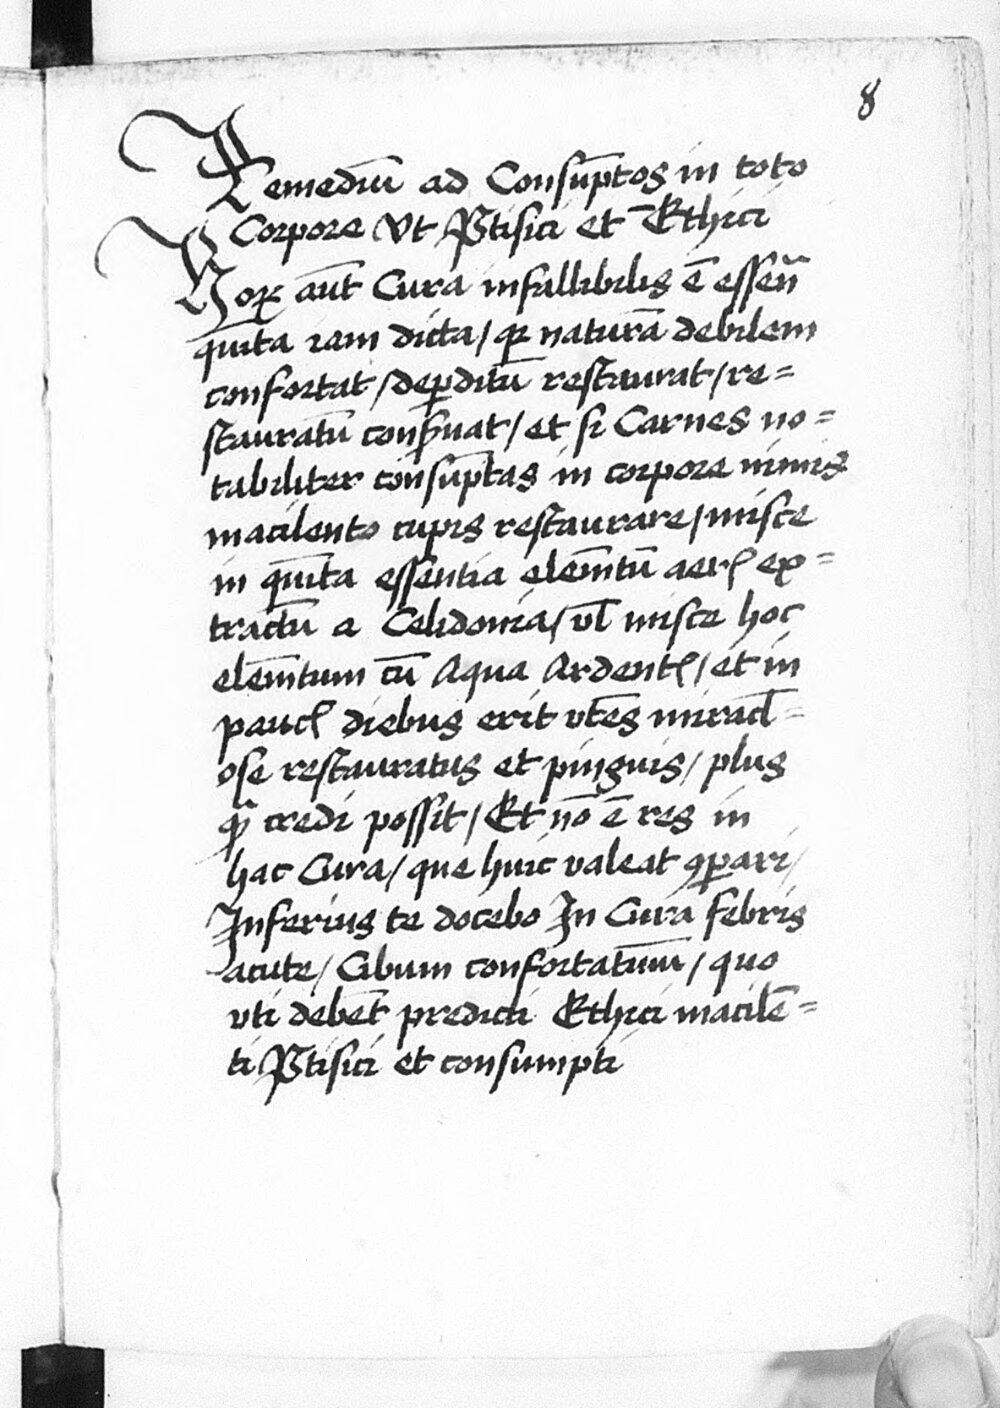 8
Remediū ad Consūptos in toto
Corpore Vt Ptisici et Ethici
Hoꝝ aūt Cura infallibilis ē essen̄
quīta iam dicta / qꝛ naturā debilem
confortat / deꝑditū restaurat / re=
stauratū conẜuat / et si Carnes no=
tabiliter consūptas in corpore nimis
macilento cupis restaurare / misce
in quīta essentia elemītū aerꝭ ex=
tractū a Celidonia / vl̄ misce hoc
elemītum cū Aqua Ardentꝭ / et in
paucꝭ diebus erit vt̄es miracl̄=
ose restauratus et pinguis / plus
qꝫ̄ credi possit / Et nō ē res in
hac Cura / que huic valeat ꝯꝑari /
Inferius te docebo In Cura febris
acute / Cibum confortatiūm / quo
vti debēt predicti Ethici macilē=
ti Ptisici et consumpti